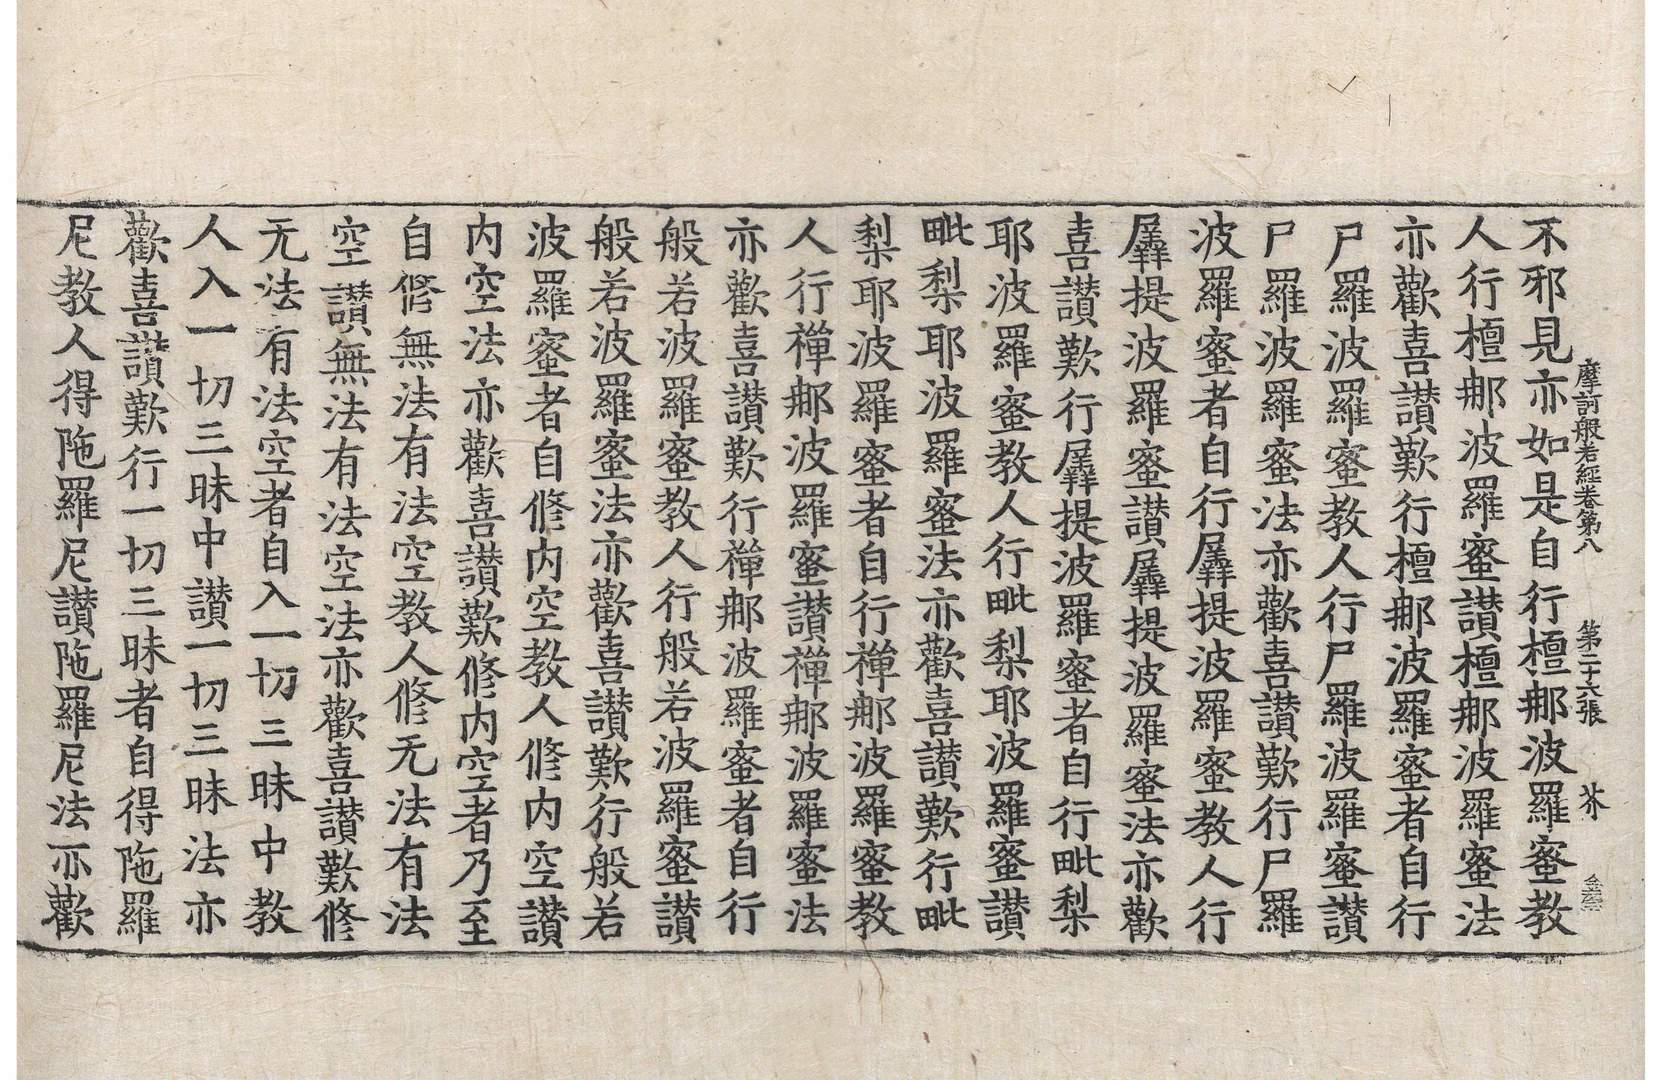 摩訶般若經卷第八 第二十六張 芥
不邪見亦如是自行檀郍波羅蜜教
人行檀郍波羅蜜讚檀郍波羅蜜法
亦歡喜讚歎行檀郍波羅蜜者自行
尸羅波羅蜜教人行尸羅波羅蜜讚
尸羅波羅蜜法亦歡喜讚歎行尸羅
波羅蜜者自行羼提波羅蜜教人行
羼提波羅蜜讚羼提波羅蜜法亦歡
喜讚歎行羼提波羅蜜者自行毗梨
耶波羅蜜教人行毗梨耶波羅蜜讚
毗梨耶波羅蜜法亦歡喜讚歎行毗
梨耶波羅蜜者自行禪郍波羅蜜教
人行禪郍波羅蜜讚禪郍波羅蜜法
亦歡喜讚歎行禪郍波羅蜜者自行
般若波羅蜜教人行般若波羅蜜讚
般若波羅蜜法亦歡喜讚歎行般若
波羅蜜者自修内空教人修内空讚
内空法亦歡喜讚歎修内空者乃至
自修無法有法空教人修无法有法
空讚無法有法空法亦歡喜讚歎修
无法有法空者自入一切三昧中教
人入一切三昧中讚一切三昧法亦
歡喜讚歎行一切三昧者自得陁羅
尼教人得陁羅尼讚陁羅尼法亦歡